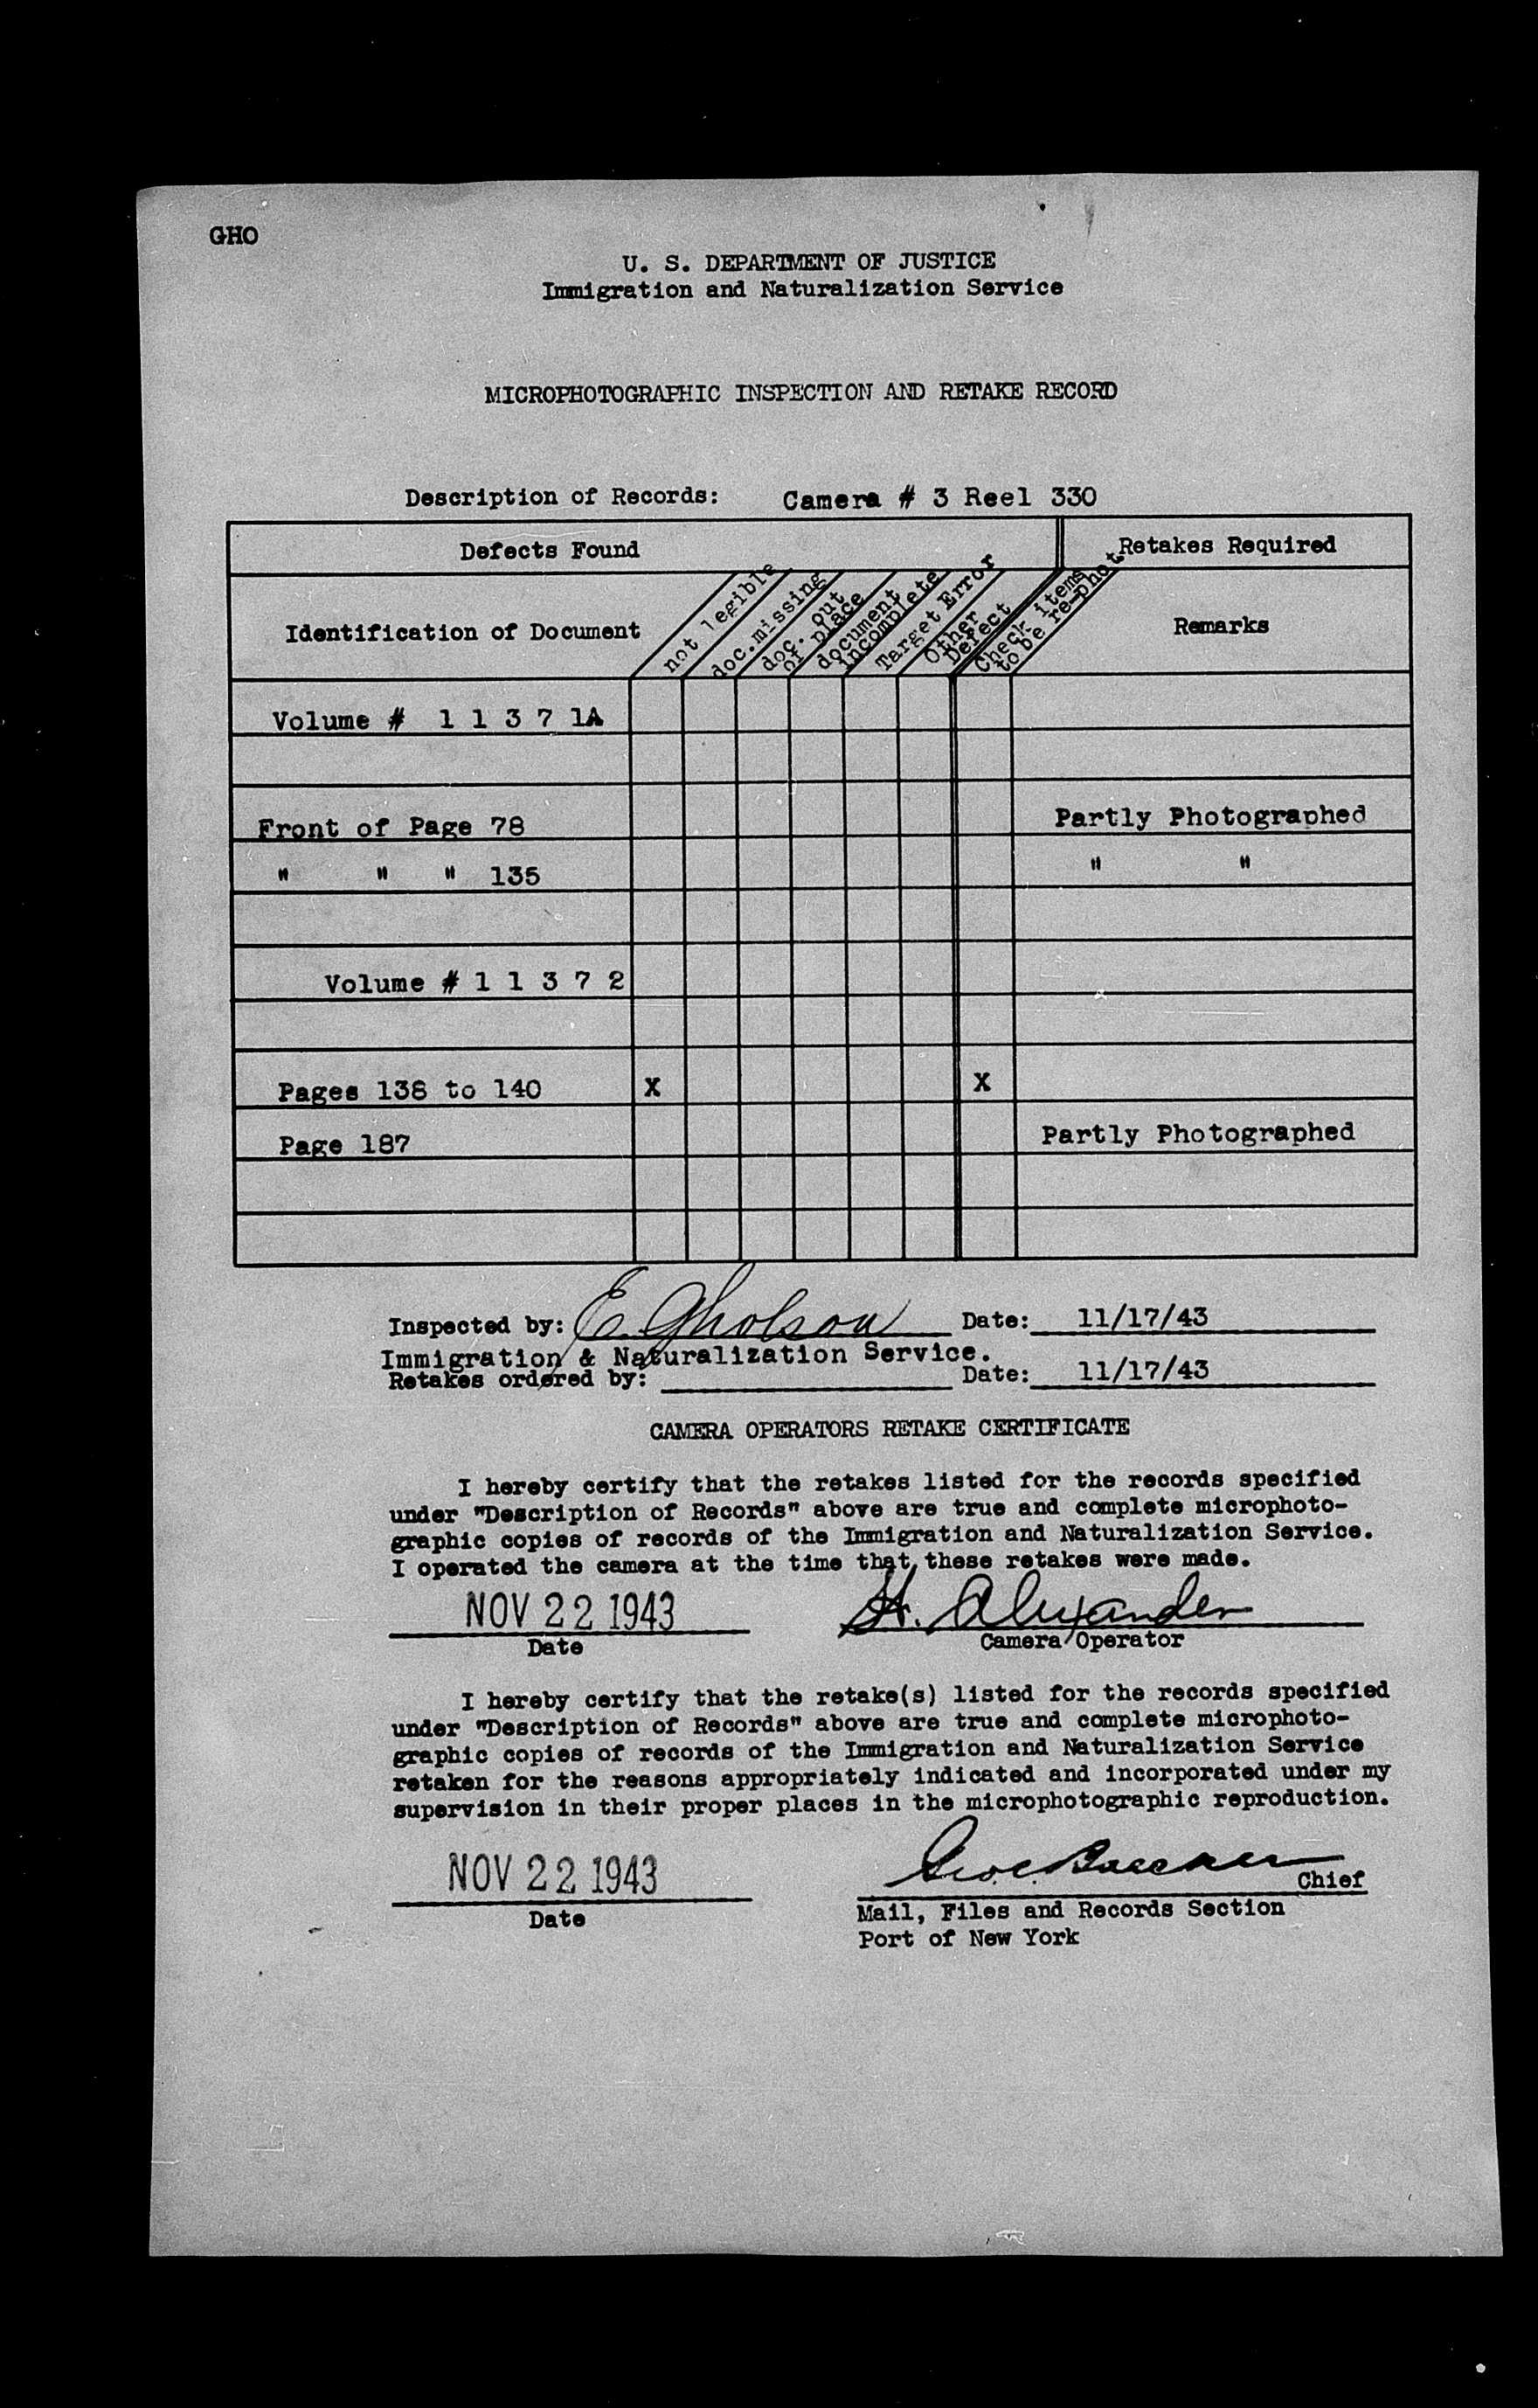 GHO
U. S. DEPARTMENT OF JUSTICE
Immigration and Naturalization Service
MICROPHOTOGRAPHIC INSPECTION AND RETAKE RECORD
Description of Records: Camera # 3 Reel 330
Defects Found
Retakes Required
Identification of Document
not legible
doc.missing
doc. out
of place
document
incomplete
Target Error
Other
Defect
Check items
to be re-phot
Remarks
Volume # 1 1 3 7 1A
Front of Page 78 Partly Photographed
" " " 135 " "
Volume # 1 1 3 7 2
Pages 138 to 140 X X
Page 187 Partly Photographed
Inspected by: E. Gholson Date: 11/17/43
Immigration & Naturalization Service.
Retakes ordered by: Date: 11/17/43
CAMERA OPERATORS RETAKE CERTIFICATE
I hereby certify that the retakes listed for the records specified
under "Description of Records" above are true and complete microphoto-
graphic copies of records of the Immigration and Naturalization Service.
I operated the camera at the time that these retakes were made.
NOV 22 1943 H. Alexander
Date Camera Operator
I hereby certify that the retake(s) listed for the records specified
under "Description of Records" above are true and complete microphoto-
graphic copies of records of the Immigration and Naturalization Service
retaken for the reasons appropriately indicated and incorporated under my
supervision in their proper places in the microphotographic reproduction.
NOV 22 1943 Chief
Date
Mail, Files and Records Section
Port of New York